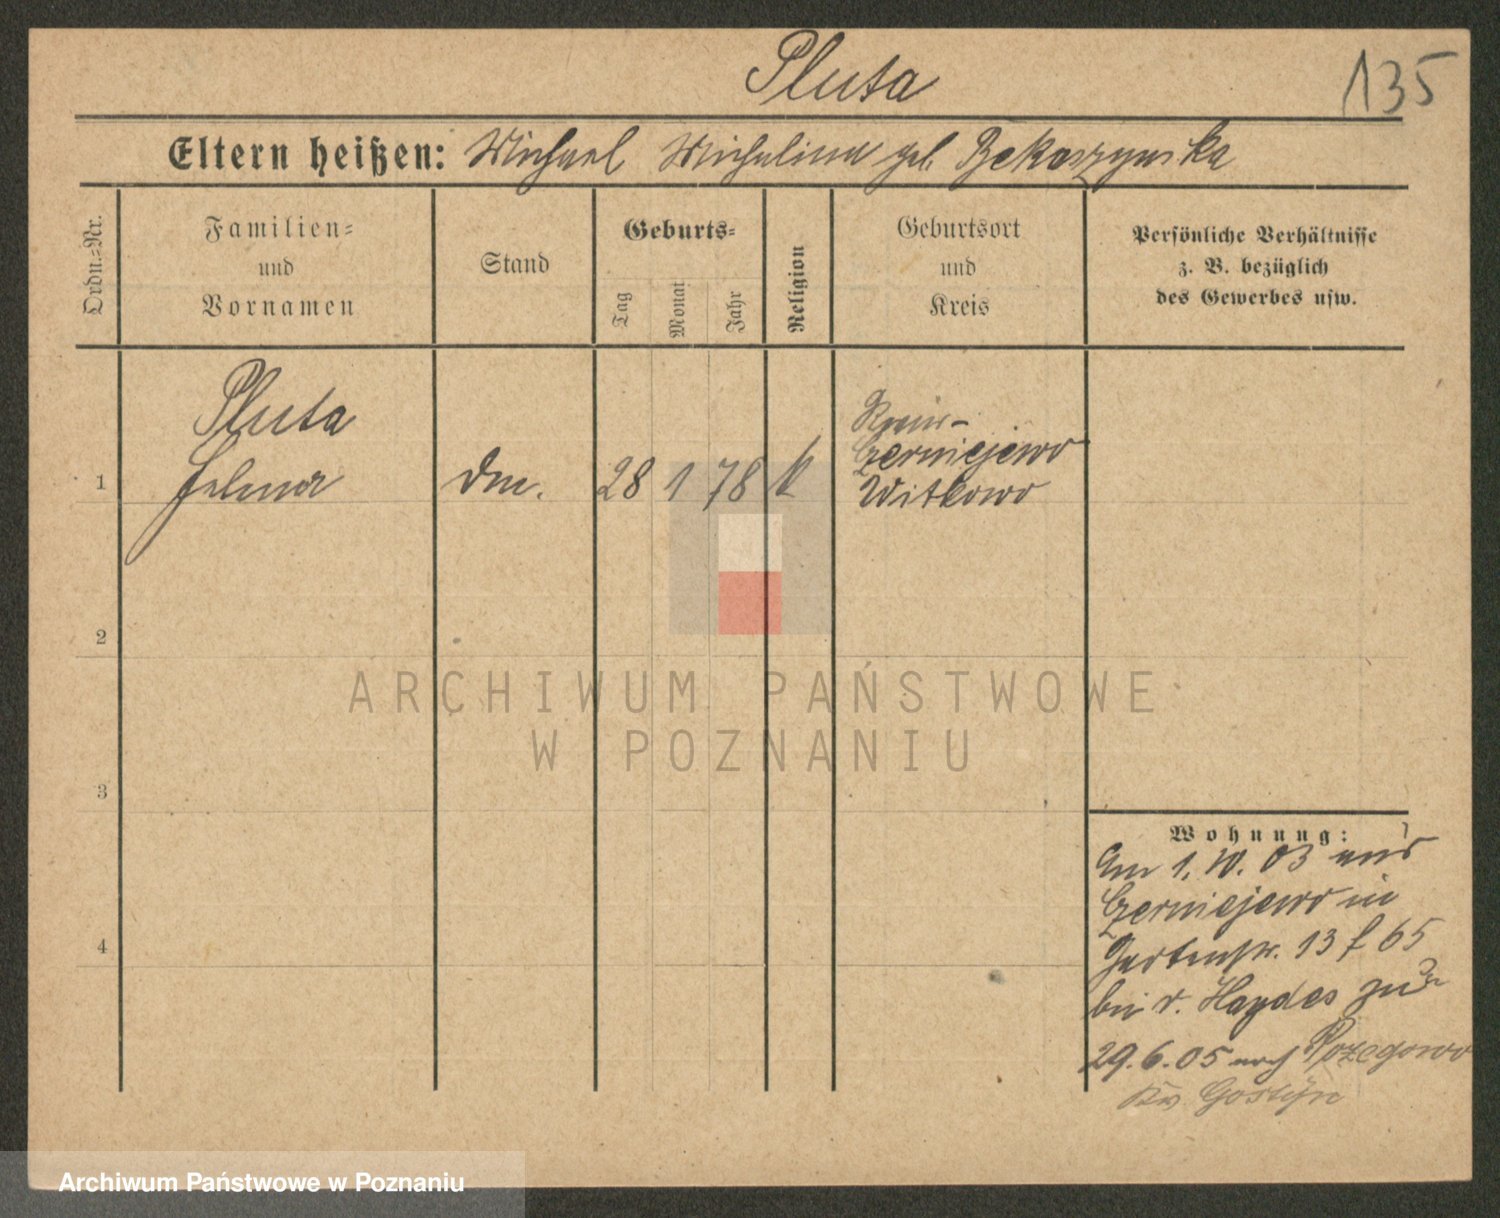 Pluta
135
Eltern heißen: Michael Michalina geb.
Ordn.-Nr.
Familien=
und
Vornamen
Stand
Geburts=
Tag
Monat
Jahr
Religion
Geburtsort
und
Kreis
Persönliche Verhältnisse
z. B. bezüglich
des Gewerbes usw.
Pluta
1 Dm. 28 1 78 k
Czerniejewo
Witkowo
2
3
4
Wohnung:
Am 1. 10. 03 aus
Czerniejewo in
Gartenstr. 13 f 65
bei v. Haydes zur
29.6.05 nach
Kr. Gostyn
ARCHIWUM PAŃSTWOWE
W POZNANIU
Archiwum Państwowe w Poznaniu